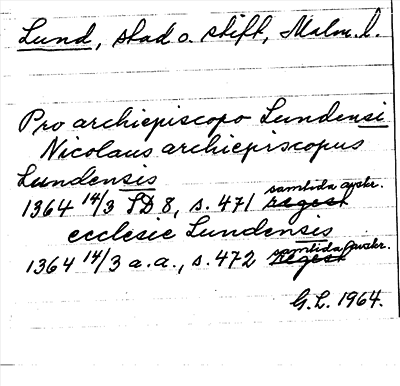 Lund, stad o. stift, Malm. l.
Pro archiepiscopo Lundensi
Nicolaus archiepiscopus
Lundensis
1364 14/3 SD 8, s. 471 samtida avskr. regest
ecclesie Lundensis
1364 14/3 a.a., s. 472 samtida avskr. regest
G.L. 1964.